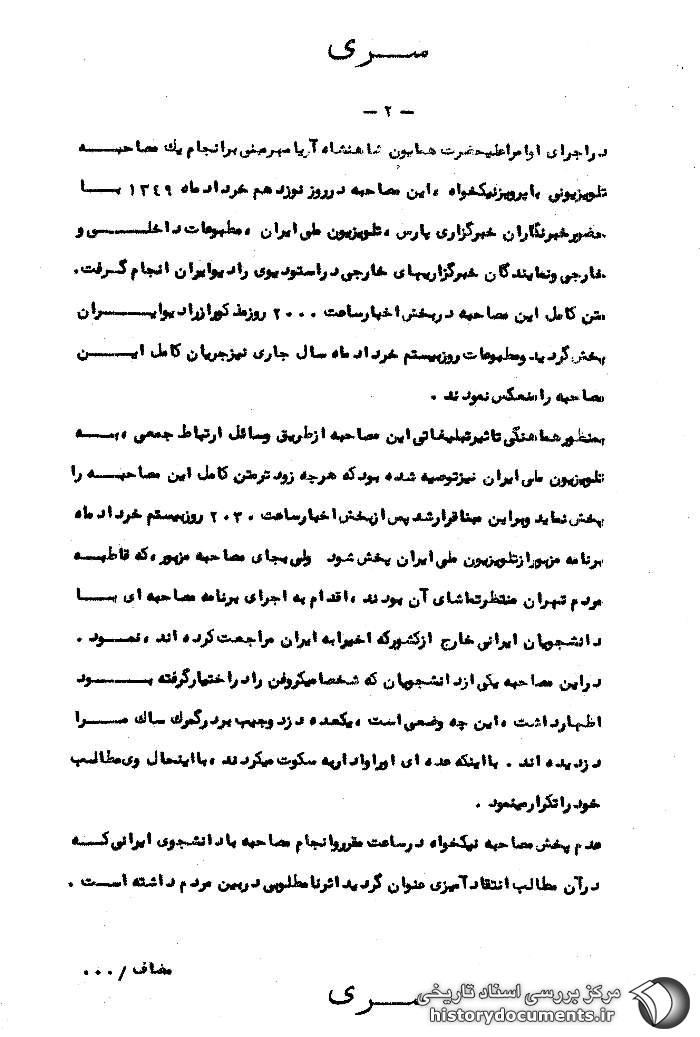 سری
- ٢ -
در اجرای اوامر اعلیحضرت همایون شاهنشاه آریامهر مبنی بر انجام یك مصاحبه
تلویزیونی با پرویز نیکخواه ، این مصاحبه در روز نوزدهم خرداد ماه ١٣٤٩ با
حضور خبرنگاران خبرگزاری پارس ، تلویزیون ملی ایران ، مطبوعات داخلی و
خارجی و نمایندگان خبرگزاریهای خارجی در استودیوی رادیو ایران انجام گرفت .
متن کامل این مصاحبه در بخش اخبار ساعت ٢٠٠٠ روز مذکور از رادیو ایران
پخش گردید و مطبوعات روز بیستم خرداد ماه سال جاری نیز جریان کامل این
مصاحبه را منعکس نمودند .
بمنظور هماهنگی تاثیر تبلیغاتی این مصاحبه از طریق وسائل ارتباط جمعی ، به
تلویزیون ملی ایران نیز توصیه شده بود که هرچه زود تر متن کامل این مصاحبه را
پخش نماید و براین مبنا قرار شد پس از بخش اخبار ساعت ٢٠٣٠ روز بیستم خرداد ماه
برنامه مزبور از تلویزیون ملی ایران پخش شود ولی بجای مصاحبه مزبور ، که قاطبه
مردم تهران منتظر تماشای آن بودند ، اقدام به اجرای برنامه مصاحبه ای با
دانشجویان ایرانی خارج از کشور که اخیرا به ایران مراجعت کرده اند ، نمود .
در این مصاحبه یکی از دانشجویان که شخصا میکروفن را در اختیار گرفته بود
اظهار داشت ، این چه وضعی است ، یکعده دزد و جیب بر در گمرك ساك مرا
دزدیده اند . با اینکه عده ای او را وادار به سکوت میکردند ، با اینحال وی مطالب
خود را تکرار مینمود .
عدم پخش مصاحبه نیکخواه در ساعت مقرر و انجام مصاحبه با دانشجوی ایرانی که
در آن مطالب انتقاد آمیزی عنوان گردید اثر نا مطلوبی در بین مردم داشته است .
مضاف / ٠٠٠
سری
مرکز بررسی اسناد تاریخی
historydocuments.ir